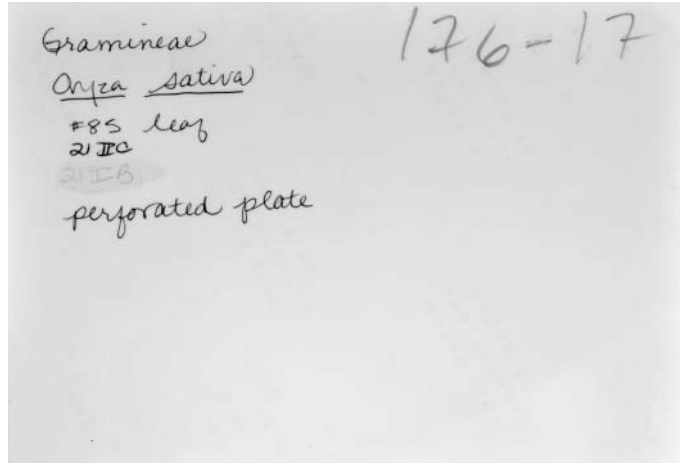 Gramineae
176-17
Oryza sativa
#85 leaf
21 II C
21 I B
perforated plate